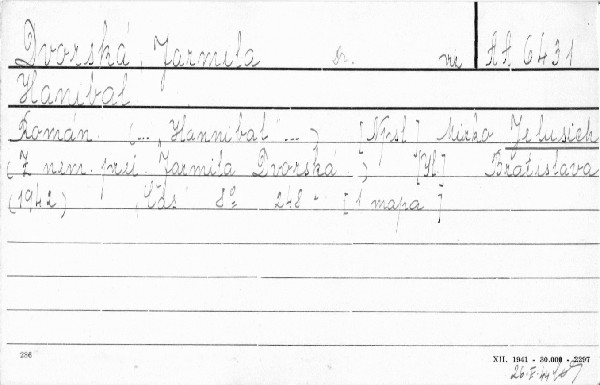 Dvorská, Jarmila vc AA 6431
Hanibal
Román. (... "Hannibal" ...) [Nsp.] Mirko Jelusich
(Z nem. prel. Jarmila Dvorská.) [Vl] Bratislava
(1942) Čas 8° 248 s. [1 mapa]
286 XII. 1941 - 30.000 - 2297